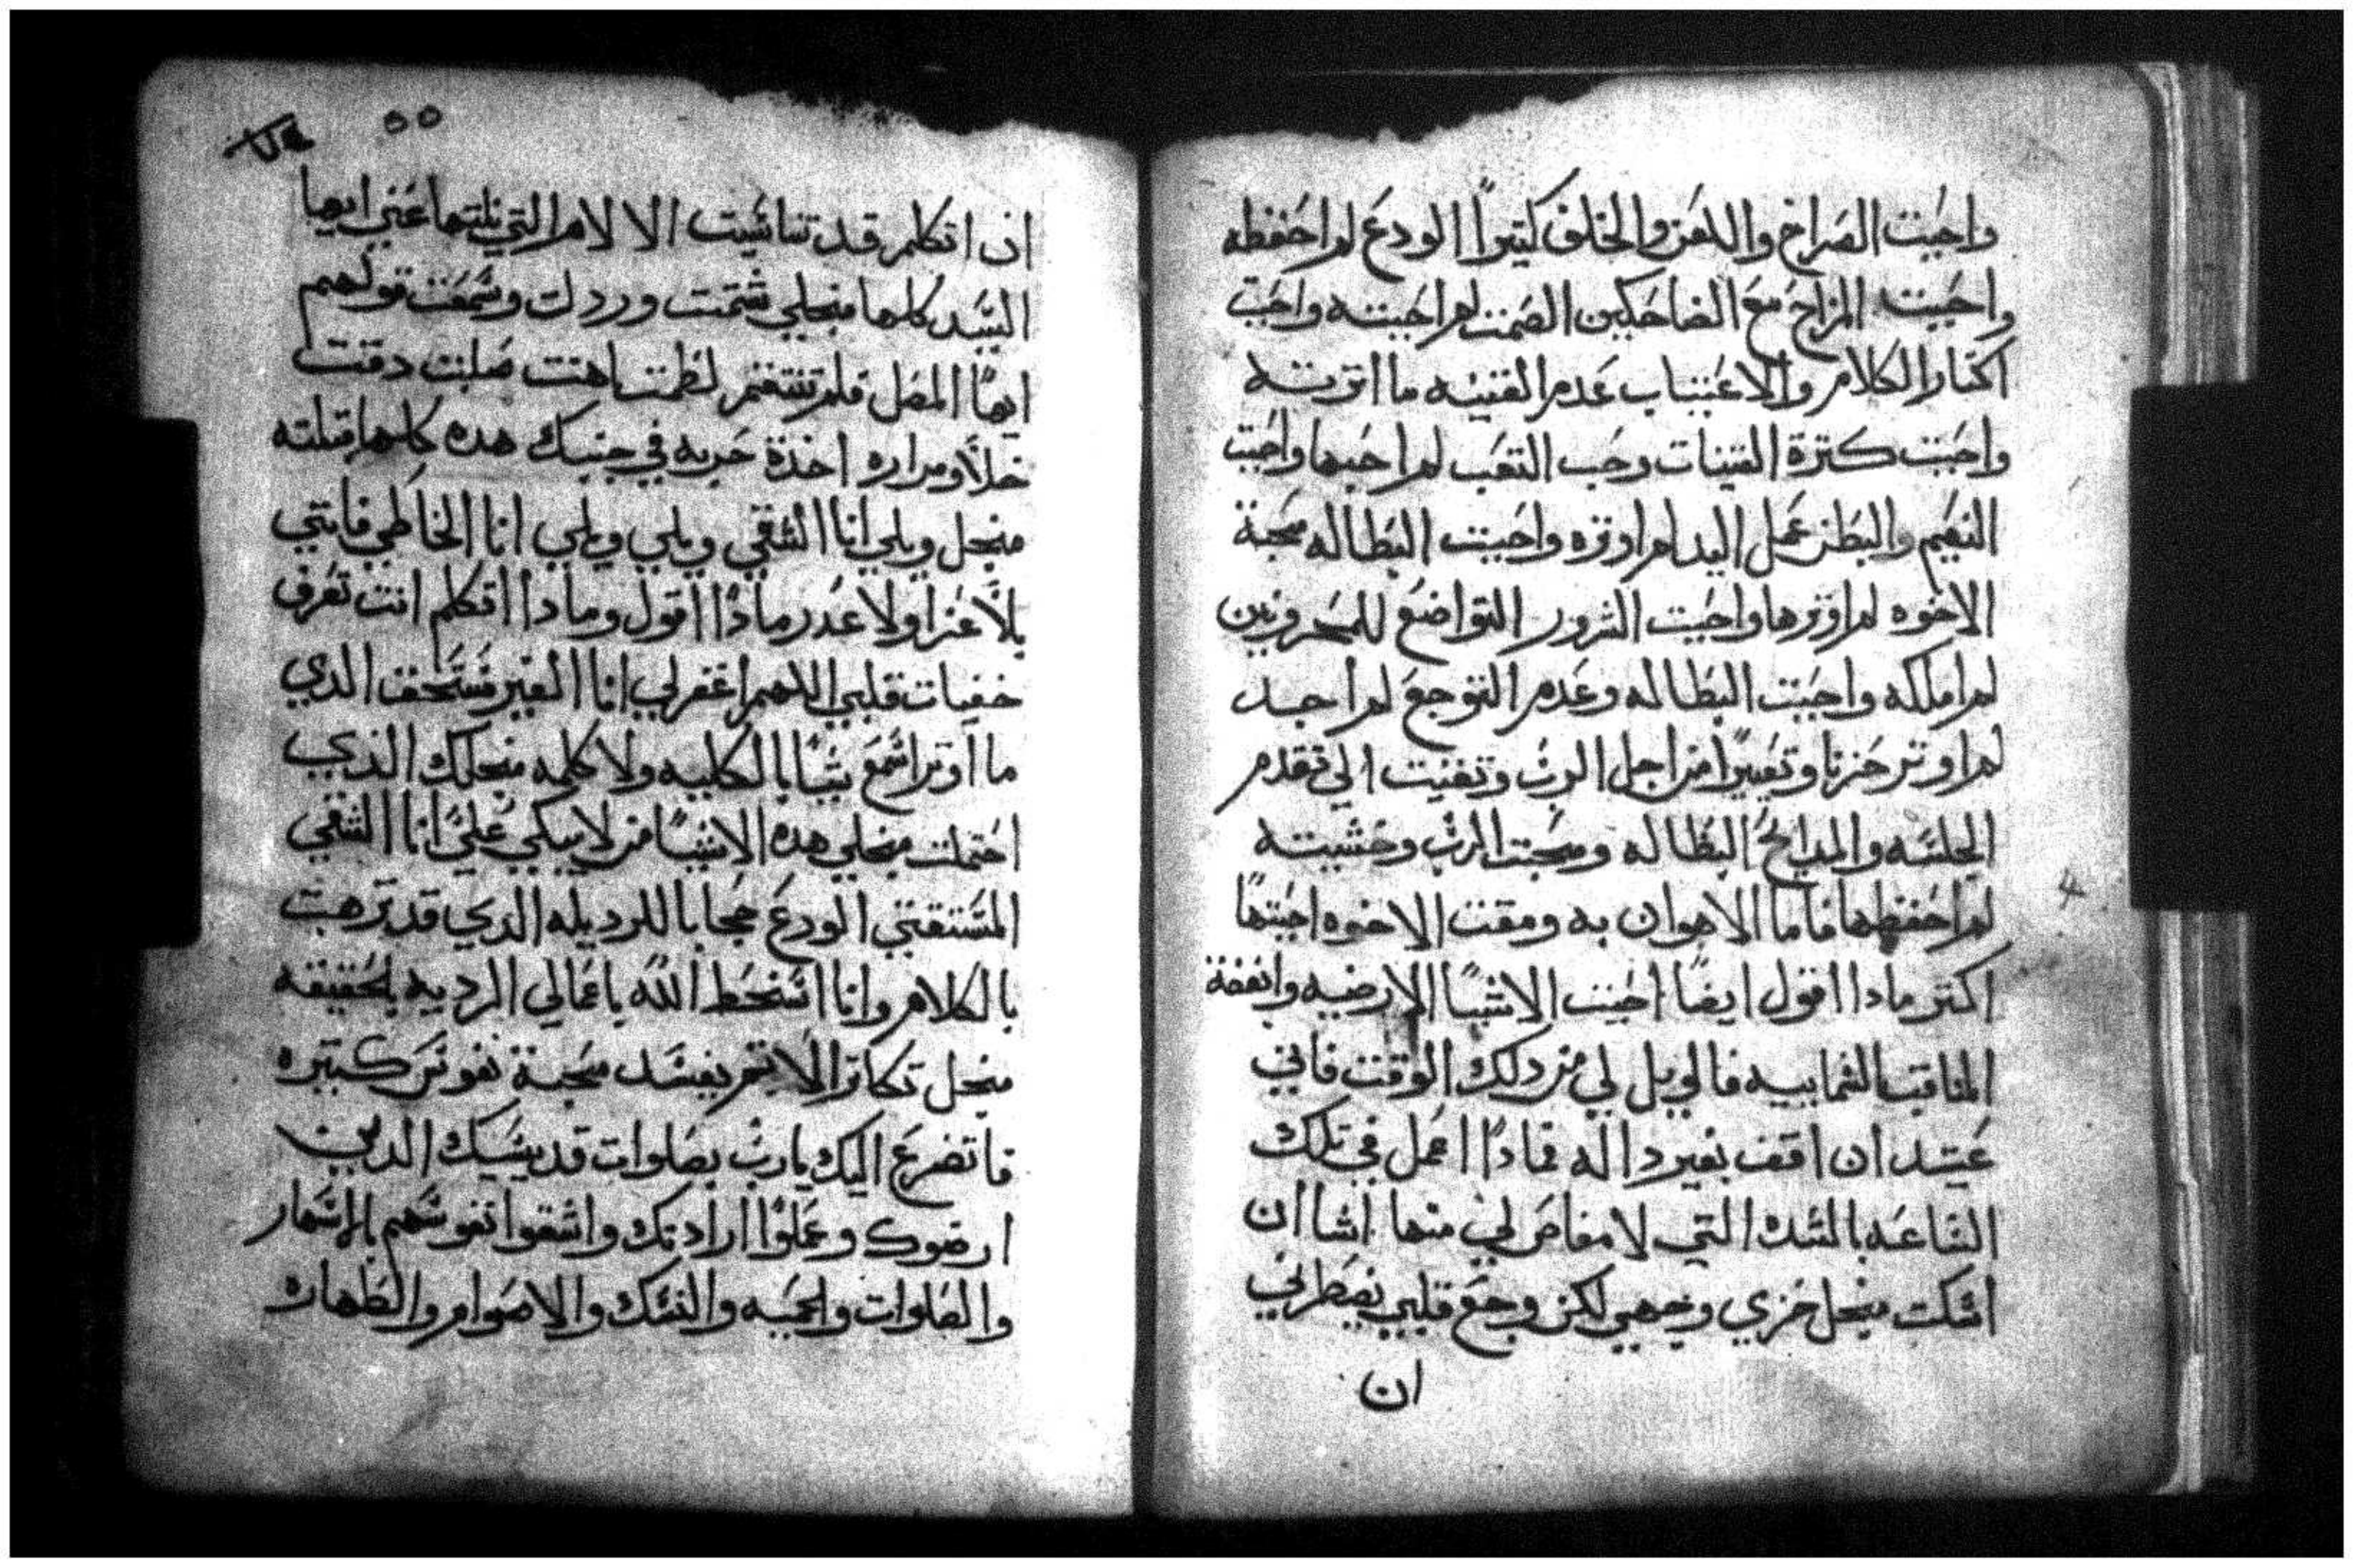 واحببت الصراخ واللعن والخلف كتيراً الودع لم احفظه
واحببت المزاح مع الضاحكين الصمت لم احببته واحببت
اكتار الكلام والاغتياب عدم القنيه ما اترته
واحببت كترة القنيات وحب التعب لم احبها واحببت
النعيم والبطر عمل اليد لم اوتره واحببت البطاله محبة
الاخوه لم اوترها واحببت الشرور التواضع للمحزونين
لم املكه واحببت البطاله وعدم التوجع لم اجد
لم اوتر حزنا وتعييراً من اجل الرب وتفنيت الي تقدم
الجلسه والمدايح البطاله ومحبت الرب وخشيته
لم احفظها فاما الاهوان به ومقت الاخوه احببتها
اكتر مادا اقول ايضاً احببت الاشيا الارضيه وابغضة
المناقب السماييه فالويل لي من دلك الوقت فاني
عتيد ان اقف بغير داله فمادا اعمل في تلك
الساعه بالشده التي لا مفاص لي منها اشا ان
اسكت منجل خزي وجهي لكن وجع قلبي يضطرني
ان
٥٥
ان اتكلم قد تناسيت الالام التي نلتها عني ايها
السيد كلها منجلي شتمت وردلت وسمعت قولهم
ايها المضل فلم تنتقم لطمت اهنت صلبت دقت
خلاً ومراره اخذة حربه في جنبك هده كلها قبلته
منجل ويلي انا الشقي ويلي ويلي انا الخاطي فانني
بلا عزا ولا عدر مادا اقول ومادا اتكلم انت تعرف
خفيات قلبي اللهم اغفر لي انا الغير مستحق الدي
ما اوتر اسمع شيا بالكليه ولا كلمه منجلك الذي
احتملت منجلي هده الاشيا من لا يبكي علي انا الشقي
المستقني الودع حجابا للرديله الدي قد ترهبت
بالكلام وانا اسخط الله باعمالي الرديه بالحقيقه
منجل تكاتر الاتم يفسد محبة نفوس كتيره
فاتضرع اليك يارب بصلوات قديسيك الدين
ارضوك وعملوا ارادتك واشقوا نفوسهم بالاسهار
والصلوات والحميه والنسك والاصوام والطهاره